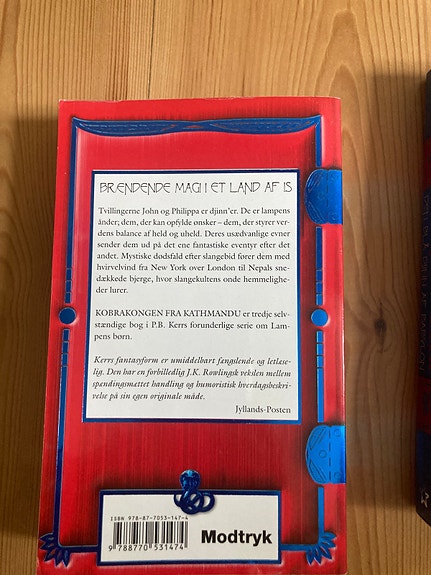 BRÆNDENDE MAGI I ET LAND AF IS
Tvillingerne John og Philippa er djinn'er. De er lampens
ånder; dem, der kan opfylde ønsker – dem, der styrer ver-
dens balance af held og uheld. Deres usædvanlige evner
sender dem ud på det ene fantastiske eventyr efter det
andet. Mystiske dødsfald efter slangebid fører dem med
hvirvelvind fra New York over London til Nepals sne-
dækkede bjerge, hvor slangekultens onde hemmelighe-
der lurer.
KOBRAKONGEN FRA KATHMANDU er tredje selv-
stændige bog i P.B. Kerrs forunderlige serie om Lam-
pens børn.
Kerrs fantasyform er umiddelbart fængslende og letlæse-
lig. Den har en forbilledlig J.K. Rowlingsk vekslen mellem
spændingsmættet handling og humoristisk hverdagsbeskri-
velse på sin egen originale måde.
Jyllands-Posten
ISBN 978-87-7053-147-4
9 788770 531474
Modtryk